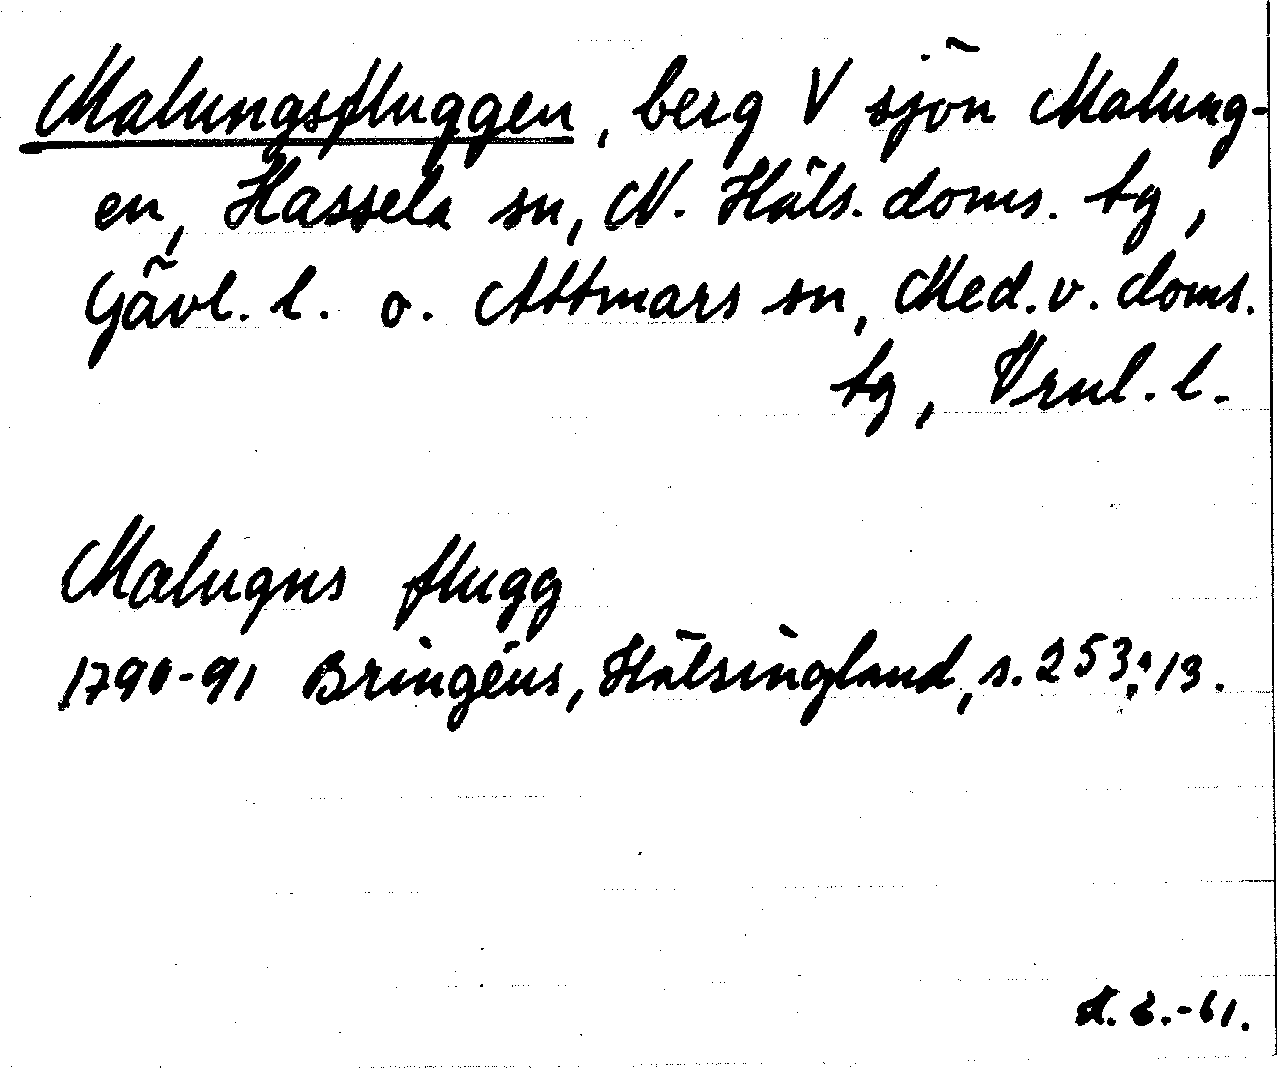 Malungsfluggen, berg V sjön Malung-
en, Hassela sn, N. Häls. doms. tg,
Gävl. l. o. Attmars sn, Med. v. doms.
tg, Vrnl. l.
Malugns flugg
1790-91 Bringéus, Hälsingland, s. 253:13.
-61.